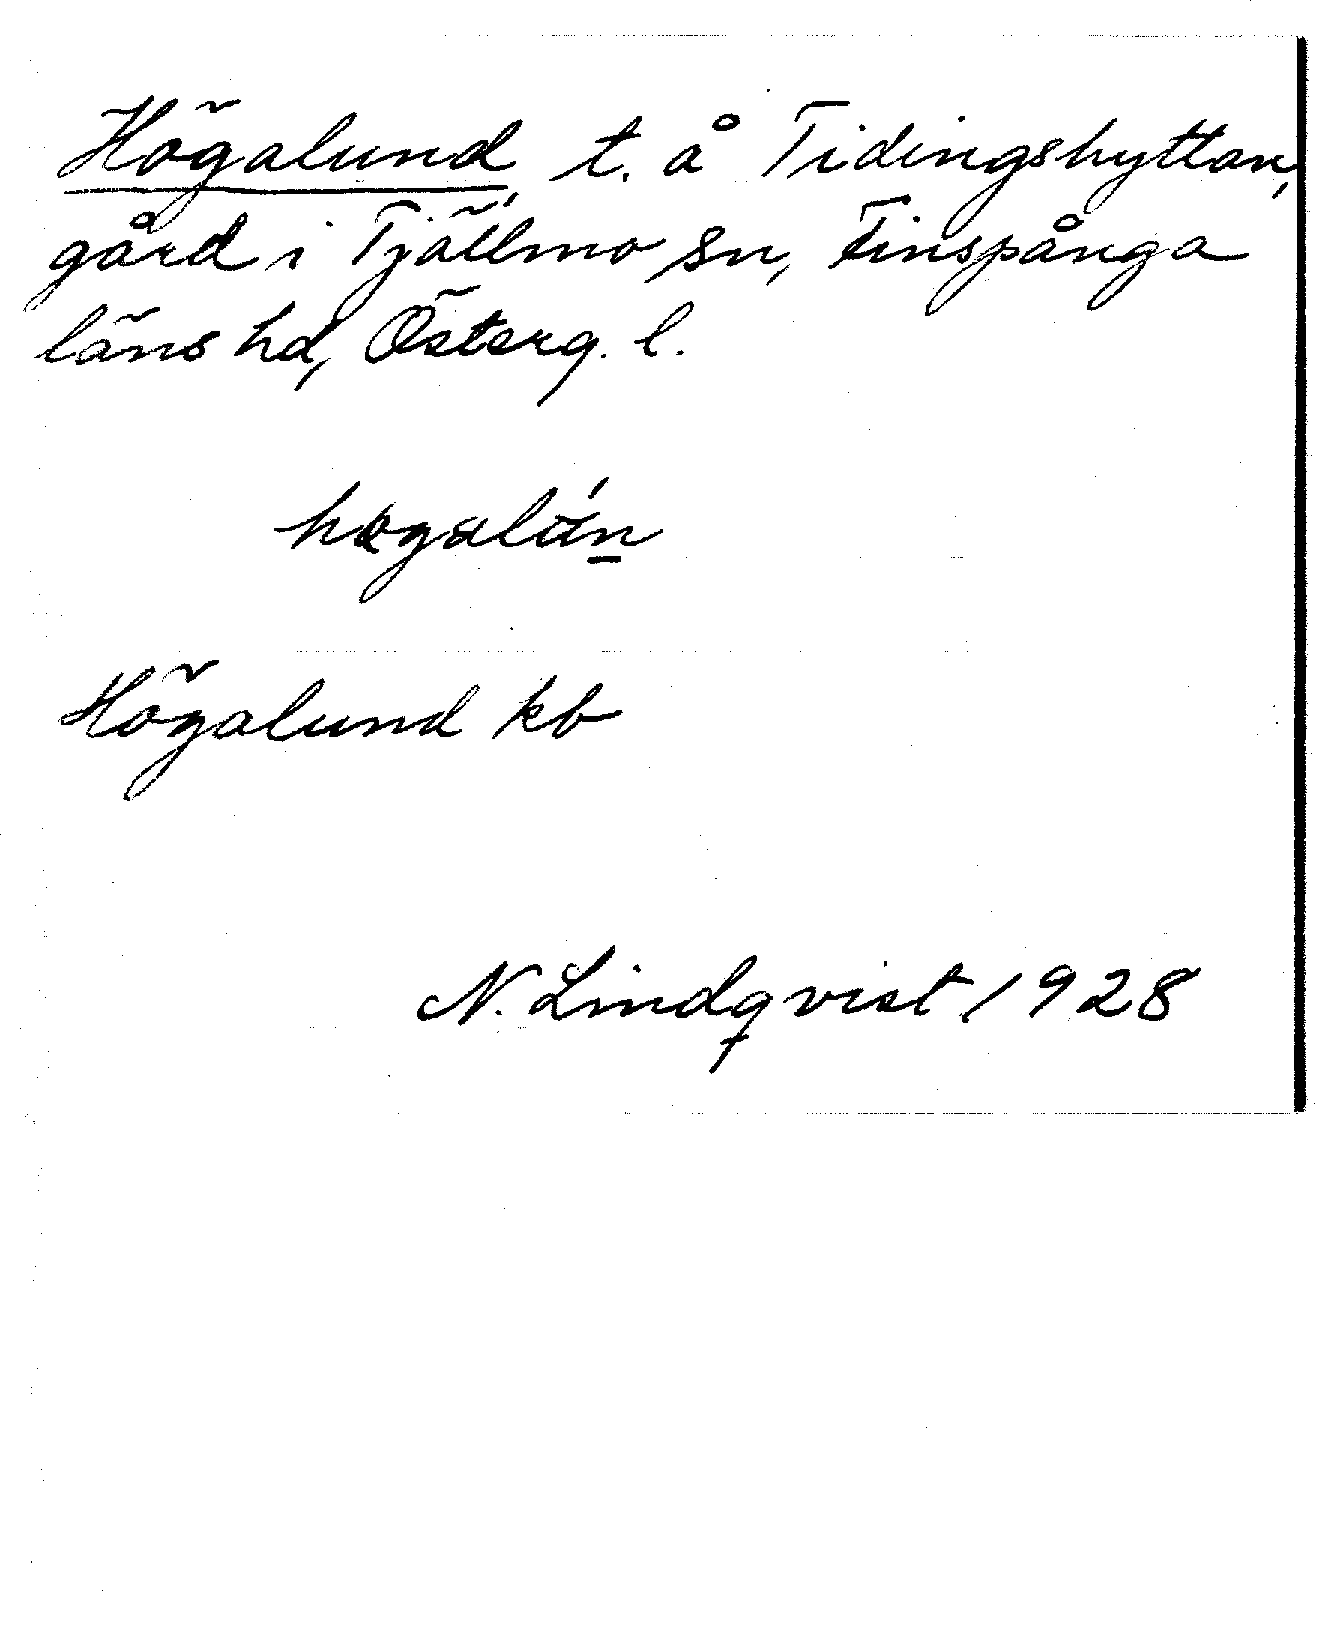 Högalund, t. å Tidingshyttan,
gård i Tjällmo sn, Finspånga
läns hd, Österg. l.
Högalund kb
N. Lindqvist 1928